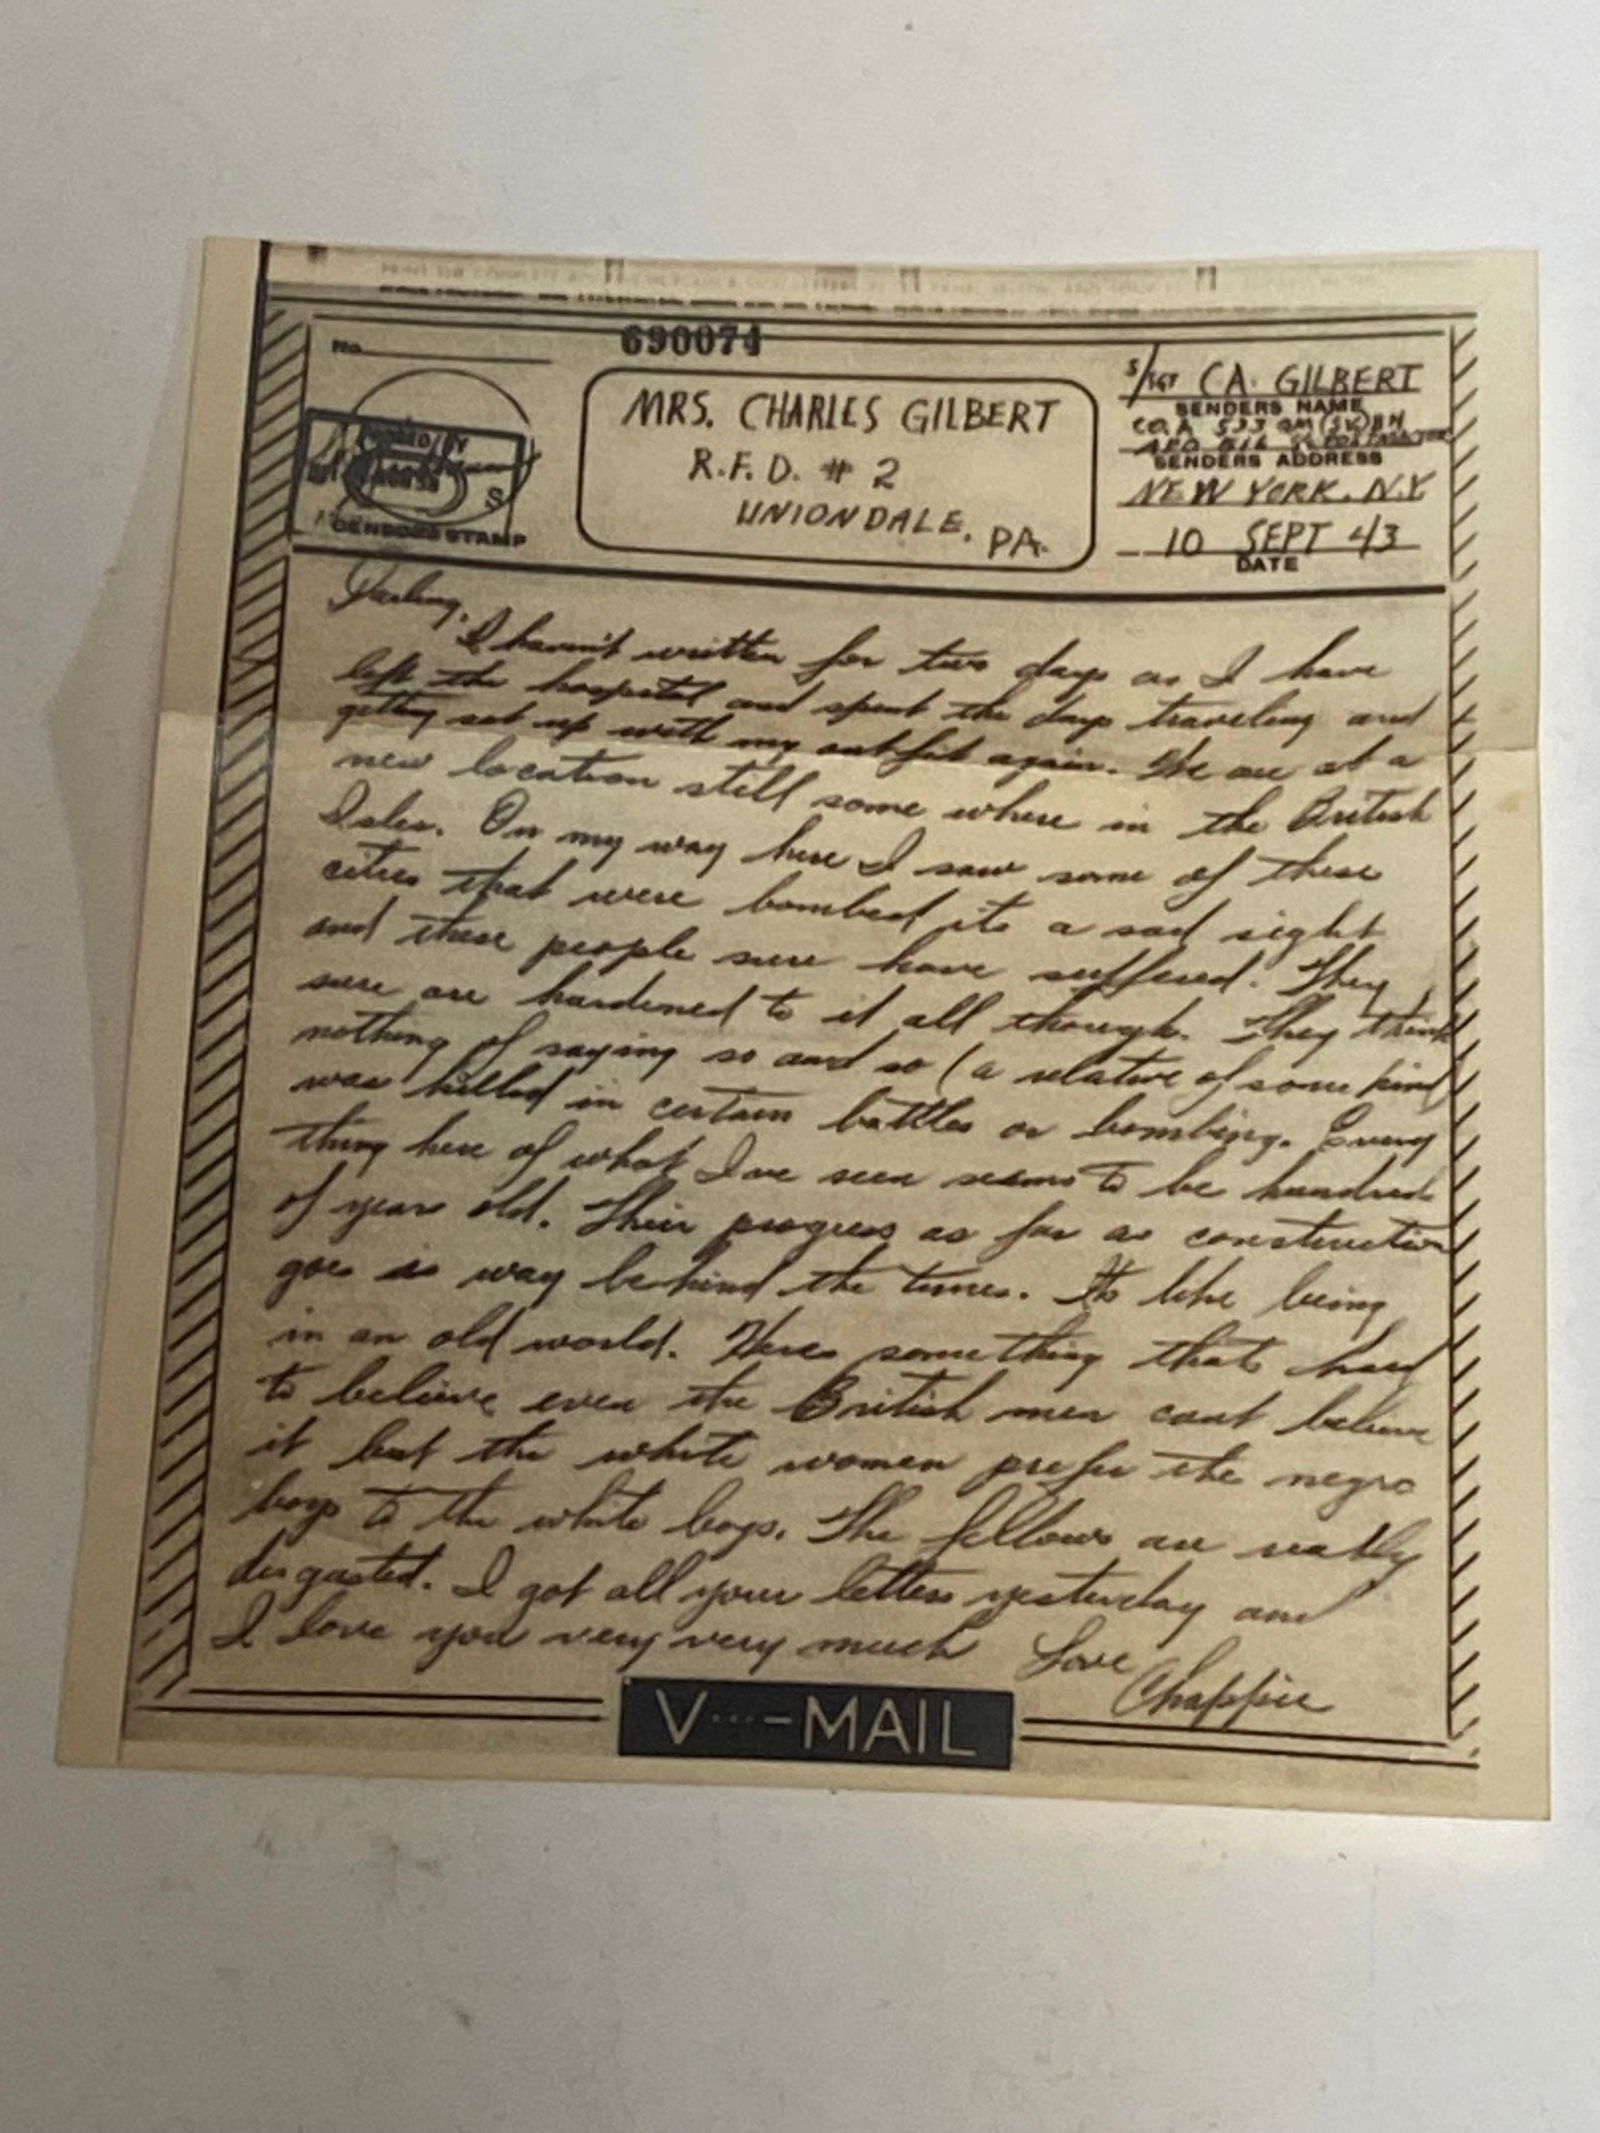 No.
690074
PASSED BY
S
CENSOR'S STAMP
MRS. CHARLES GILBERT
R.F.D. # 2
UNIONDALE, PA.
S/SGT C.A. GILBERT
SENDERS NAME
CO. A 533 QM (SV) BN
SENDERS ADDRESS
NEW YORK, N.Y.
10 SEPT 43
DATE
Darling,
I haven't written for two days as I have
left the hospital and spent the days traveling and
getting set up with my outfit again. We are at a
new location still some where in the British
Isles. On my way here I saw some of these
cities that were bombed its a sad sight
and these people sure have suffered. They
sure are hardened to it all though. They think
nothing of saying so and so (a relative of some kind)
was killed in certain battles or bombing. Every
thing here of what I've seen seems to be hundred
of year old. Their progress as far as construction
goes is way behind the times. Its like being
in an old world. Heres something that hard
to believe even the British men cant believe
it but the white women prefer the negro
boys to the white boys. The fellows are really
disgusted. I got all your letters yesterday and
I love you very very much Love
Chappie
V···—MAIL